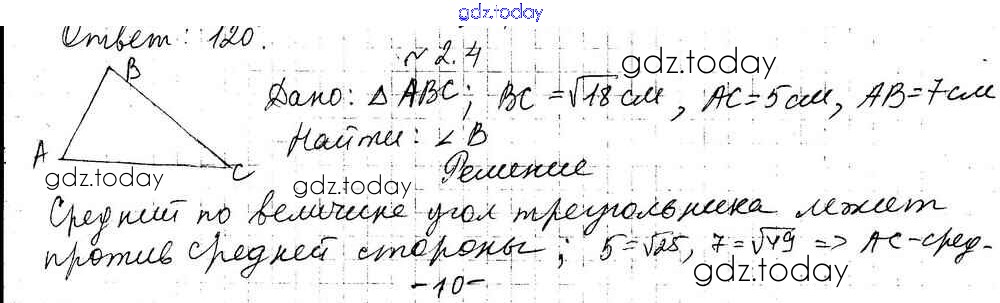 gdz.today
Ответ: 120.
№ 2.4
gdz.today
B
Дано: △ ABC; BC = √18 см, AC = 5 см, AB = 7 см
Найти: ∠ B
A
C
Решение
gdz.today
gdz.today
Средний по величине угол треугольника лежит
против средней стороны; 5 = √25, 7 = √49 => AC - сред-
gdz.today
-10-